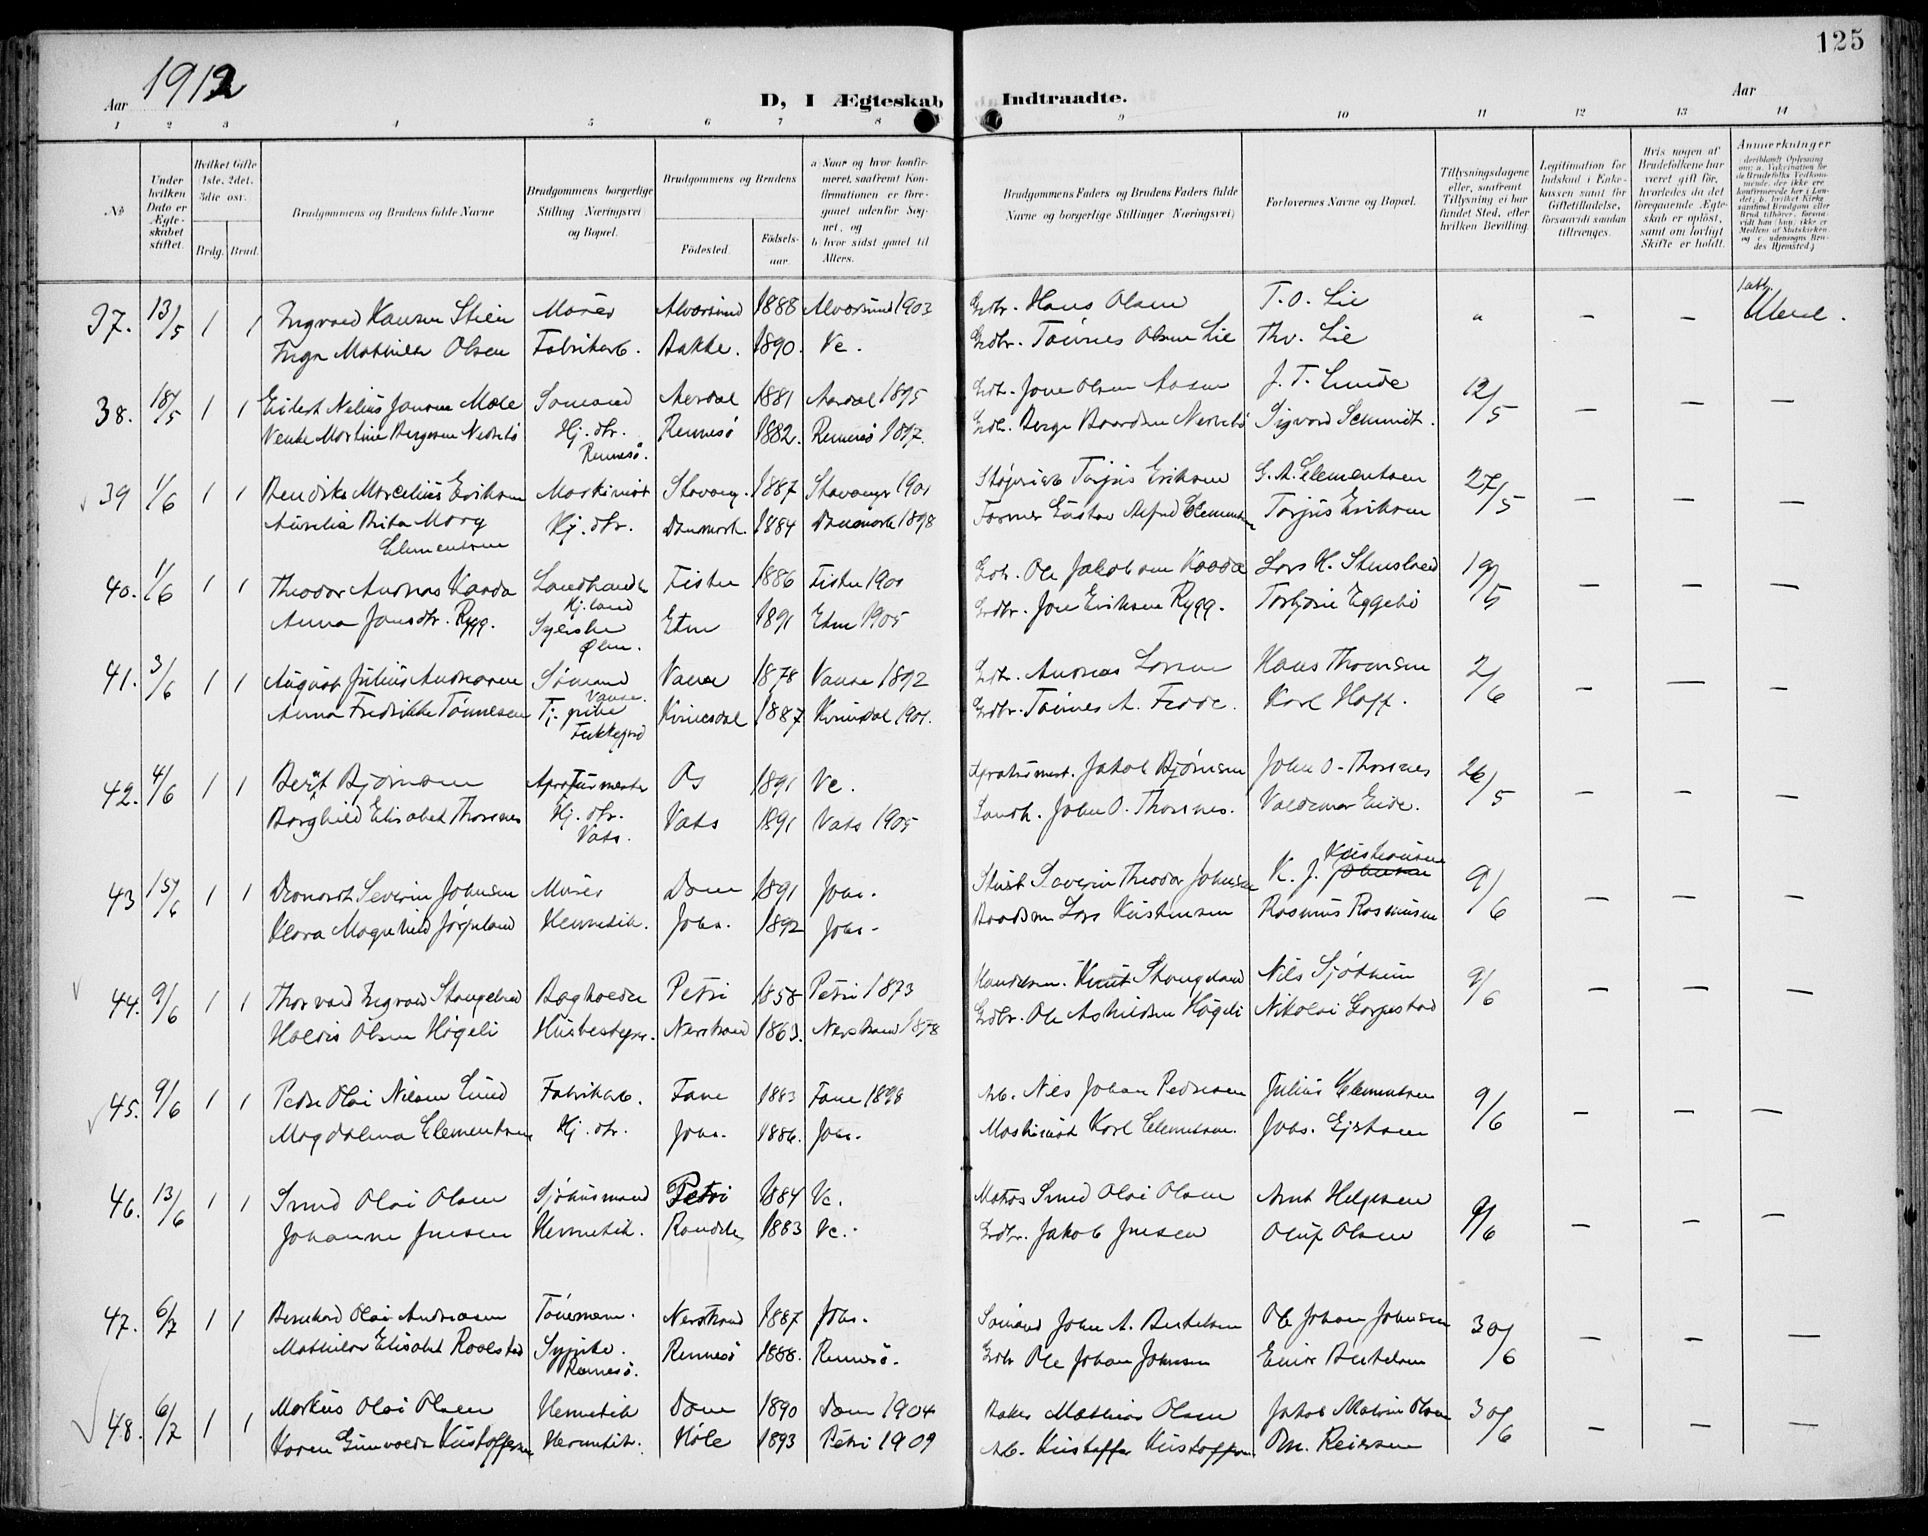 125
Aar 1912
D, I Ægteskab Indtraadte.
Aar
1 2 3 4 5 6 7 8 9 10 11 12 13 14
№
Under hvilken Dato er Ægteskabet stiftet.
Hvilket Gifte (1ste, 2det, 3die osv.
Brdg. Brud.
Brudgommens og Brudens fulde Navne
Brudgommens borgerlige Stilling (Næringsvei) og Bopæl.
Brudgommens og Brudens
Fødested. Fødselsaar.
a) Naar og hvor konfirmeret, saafremt Konfirmationen er foregaaet udenfor Sognet, og
b) hvor sidst gaaet til Alters.
Brudgommens Faders og Brudens Faders fulde Navne og borgerlige Stillinger (Næringsvei)
Forlovernes Navne og Bopæl.
Tillysningsdagene eller, saafremt Tillysning ei har fundet Sted, efter hvilken Bevilling.
Legitimation for Indskud i Enkekassen samt for Giftetilladelse, forsaavidt saadan tiltrænges.
Hvis nogen af Brudefolkene har været gift før, hvorledes da det foregaaende Ægteskab er opløst, samt om lovligt Skifte er holdt.
Anmerkninger
37. 13/5 1 1 Ingvald Hansen Stien Murer Alversund 1888 Alversund 1903 Grdbr. Hans Olsen T. O. Lie " - -
Inga Mathilde Olsen Fabrikarb. Bakke. 1890. Vc. Grdbr. Tønnes Olsen Lie Thv. Lie
38. 18/5 1 1 Eilert Nelius Jonsen Mæle Sømand Aardal 1881 Aardal 1895 Grdbr. Jone Olsen Aasen J. T. Lunde 12/5 - - -
Venke Martine Bergesen Nedrebø Hj. dtr. Rennesø 1882. Rennesø 1897. Grdbr. Berge Baardsen Nedrebø Sigvard Schmidt.
Rennesø.
39 1/6 1 1 Bendiks Marcelius Eriksen Maskinist Stavang. 1887 Stavanger 1901 Støperiarb Torjus Eriksen G. A. Clementsen 27/5 - - -
Aurelia Brita Mary Hj. dtr. Danmark. 1884 Danmark 1898 Former Gustav Alfred Clementsen Torjus Eriksen
Clementsen
40. 1/6 1 1 Theodor Andreas Kaada Landhandler Fister 1886 Fister 1901 Grdbr. Ole Jakobsen Kaada Lars K. Stensland 19/5 - - -
Hj.land
Anna Jonsdtr. Rygg. Syerske Etne 1891 Etne 1905 Grdbr. Jon Eriksen Rygg. Torbjørn Eggebø
Ølen.
41. 3/6 1 1 August Julius Andreasen Sømand Vanse 1878 Vanse 1892 Grdbr. Andreas Larsen Hans Thomsen 2/6 - - -
Vanse.
Anna Fredrikke Tønnesen Tj. pike Kvinesdal 1887 Kvinesdal 1901. Grdbr. Tønnes A. Fedde. Karl Hoff.
Fekkefjord
42. 4/6 1 1 Bernt Bjørnsen Apreturmester Os 1891 Vc. Apreturmest. Jakob Bjørnsen John O. Thorsnes 26/5 - - -
Borghild Elisabet Thorsnes Hj. dtr. Vats 1891 Vats 1905 Landh. John O. Thorsnes. Valdemar Eide.
Vats.
Kristensen
43 15/6 1 1 Leonard Severin Johnsen Murer Dom 1891 Johs. Stuert Severin Theodor Johnsen K. J. Johnsen 9/6 - - -
Klara Magnhild Jørpeland Hermetik. Johs. 1892 Johs. Baadsm Lars Kristensen Rasmus Rasmussen
44. 9/6 1 1 Thorvald Ingvald Stangeland Bogholder Petri 1858 Petri 1873 Handelsm. Knut Stangeland Nils Sjøthun 9/6 - - -
Haldis Olsen Høgeli Husbestyrer. Nerstrand 1863. Nerstrand 1878 Grdbr. Ole Askildsen Høgeli Nikolai Gorpestad
45. 9/6 1 1 Peder Olai Nilsen Lund Fabrikarb. Fane 1883 Fane 1898 Arb. Nils Johan Pedersen Julius Clementsen 9/6 - - -
Magdalena Clementsen Hj. dtr. Johs. 1886. Johs. Maskinist Karl Clementsen. Johs.
46. 13/6 1 1 Svend Olai Olsen Sjøhusmand Petri 1884 Vc. Matros Svend Olai Olsen Arnt Helgesen 9/6 - - -
Johanne Jensen Hermetik. 1883 Vc. Grdbr. Jakob Jensen Oluf Olsen
47. 6/7 1 1 Bernhard Olai Andreasen Tøndem. Nerstrand 1887 Johs. Sømand John A. Bertelsen Ole Johan Johnsen 30/6 - - -
Mathilde Elisabet Roalstad Sypike. Rennesø 1888. Rennesø. Grdbr Ole Johan Johnsen Einar Bertelsen
Rennesø.
48. 6/7 1 1 Markus Olai Olsen Hermetik Dom 1890 Dom 1904 Baker Mathias Olsen Jakob Malvin Olsen 30/6 - - -
Karen Gunvalda Kristoffersen Hermetik. Høle 1893 Petri 1909 Arb. Kristoffer Kristoffersen. Reiersen